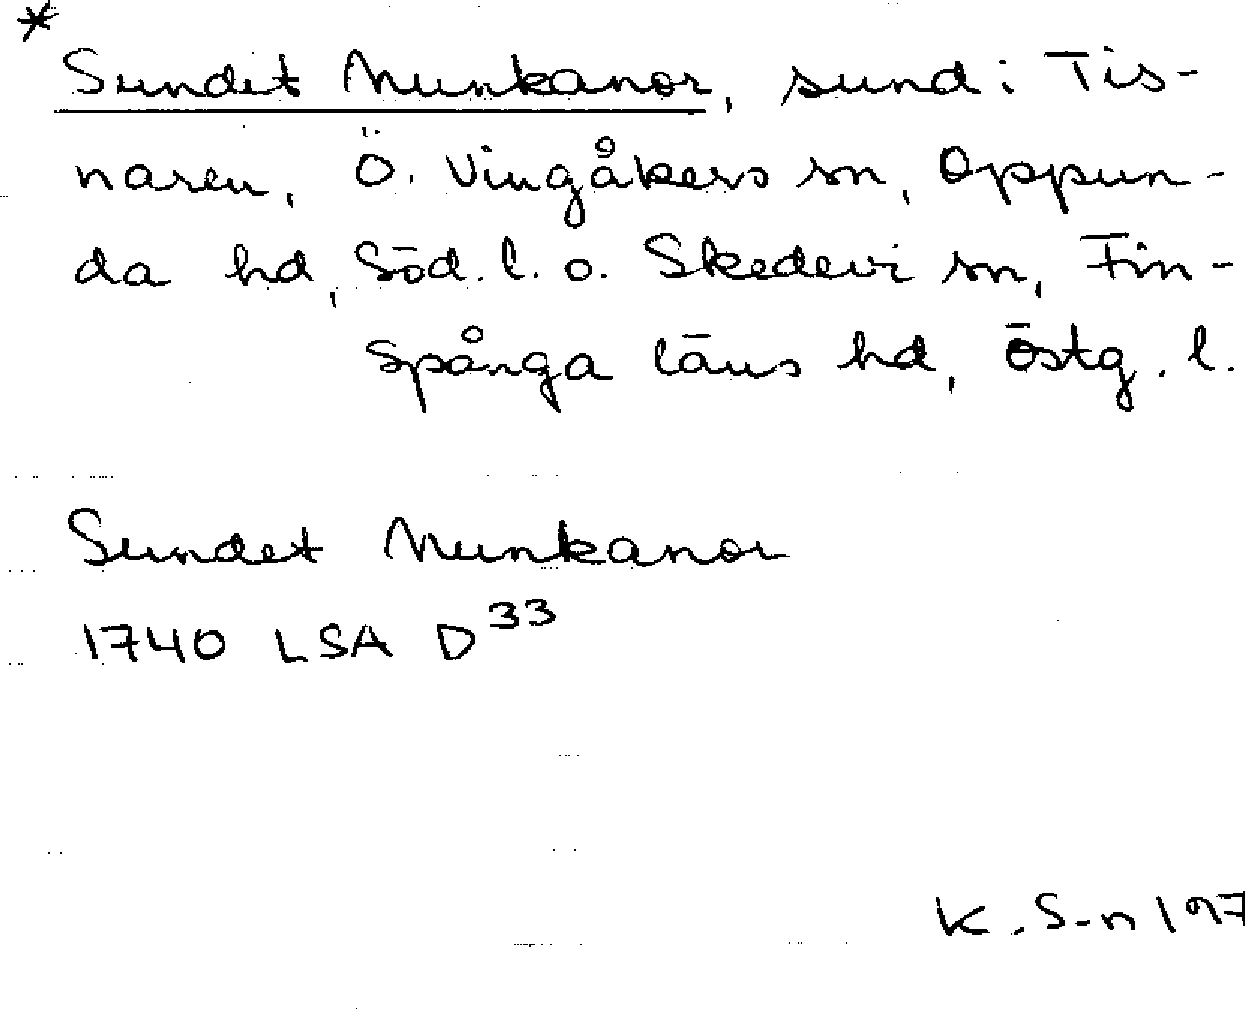 *
Sundet Munkanor, sund i Tis-
naren, Ö. Vingåkers sn, Oppun-
da hd, Söd. l. o. Skedevi sn, Fin-
spånga läns hd, Östg. l.
Sundet Munkanor
1740 LSA D33
K. S-n 197